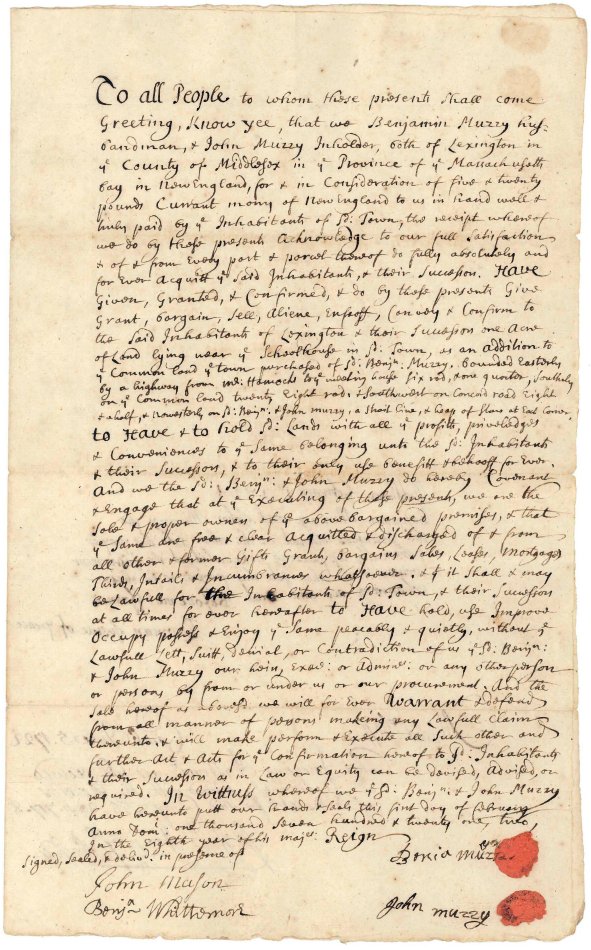 To all People to whom these presents shall come
Greeting, Know yee, that we Benjamin Muzzy hus-
bandman, & John Muzzy Inholder, both of Lexington in
ye County of Middlesex in ye Province of ye Massachusetts
bay in New England, for & in Consideration of five & twenty
pounds Currant mony of New England to us in hand well &
truly paid by ye Inhabitants of sd: Town, the receipt whereof
we do by these presents Acknowledge to our full Satisfaction
& of & from Every part & parcel thereof do fully absolutely and
for Ever Acquitt ye said Inhabitants, & their Successors. Have
Given, Granted, & Confirmed, & do by these presents Give
Grant, bargain, Sell, Aliene, Enfeoff, Convey & Confirm to
the Said Inhabitants of Lexington & their Successors one Acre
of Land lying near ye Schoolhouse in sd: Town, as an addition to
ye Common land ye town purchased of sd: Benjn: Muzzy, bounded Easterly
by a highway from to ye meeting house Six rod, & one quorter, Southerly
on ye Common land twenty Eight rod, & Southwest on Concord road Eight
& a half, & Nowesterly on sd: Benjn: & John Muzzy, a Strait line, & heap of Stons at East Corner.
to Have & to hold sd: Lands with all ye profitts, priveledges
& Conveniences to ye Same belonging unto the sd: Inhabitants
& their Successors, & to their only use benefitt & behooff for Ever.
And we the sd: Benjn: & John Muzzy do hereby Covenant
& Engage that at ye Executing of these presents, we are the
Sole & proper owners of ye above bargained premises, & that
ye Same are free & clear Acquitted & discharged of & from
all other & former Gifts Grants, bargains Sales, Leases, Mortgages
Thirds, Intails & Incumbrances whatsoever. & yt it Shall & may
be Lawfull for the Inhabitants of sd: Town, & their Successors
at all times for ever hereafter to Have hold, use Improve
Occupy possess & Enjoy ye Same peacably & quietly, without ye
Lawfull Lett, Suitt, Denial, or Contradiction of us ye sd: Benjn:
& John Muzzy our heirs, Exec: or Admins: or any other person
or persons by from or under us or our procurement. And the
Sale hereof as abovesd: we will for Ever Warrant & defend
from all manner of persons making any Lawfull Claim
thereunto, & will make perform & Execute all Such other and
further Act & Acts for ye Confirmation hereof to sd: Inhabitants
& their Successors as in Law or Equity can be devised, Advised, or
required. In Wittness whereof we ye sd: Benjn: & John Muzzy
have hereunto putt our hands & Seals this first day of February
Anno Dom: one thousand Seven hundred & twenty one, two,
In the Eighth year of his majts: Reign
Signed, Sealed, & delivd: in presence off
Muzzy
John Mason
John muzzy
Benja Whittemore